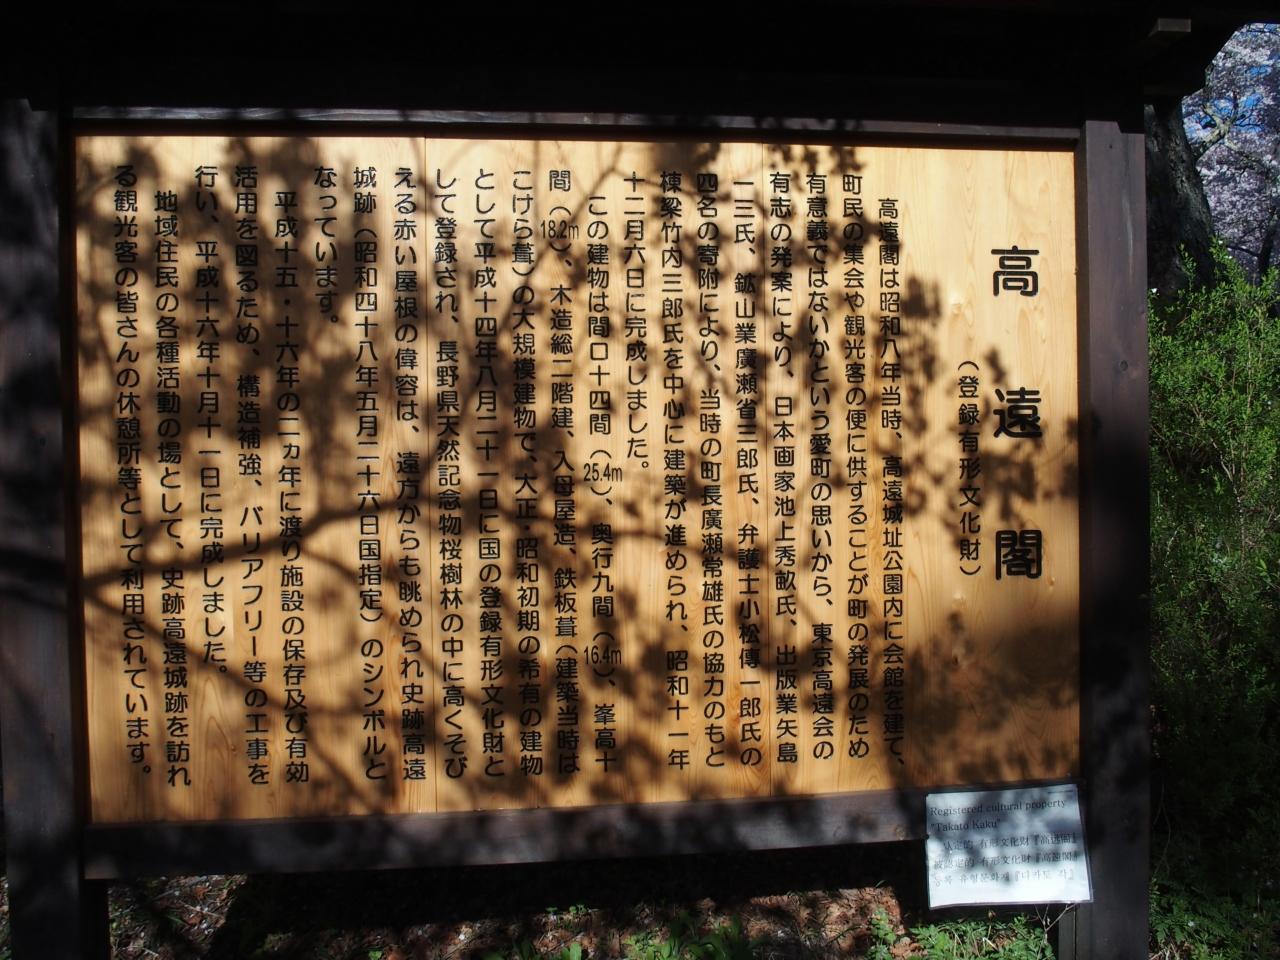 高遠閣
（登録有形文化財）
高遠閣は昭和八年当時、高遠城址公園内に会館を建て、
町民の集会や観光客の便に供することが町の発展のため
有意義ではないかという愛町の思いから、東京高遠会の
有志の発案により、日本画家池上秀畝氏、出版業矢島
一三氏、鉱山業廣瀬省三郎氏、弁護士小松傳一郎氏の
四名の寄附により、当時の町長廣瀬常雄氏の協力のもと
棟梁竹内三郎氏を中心に建築が進められ、昭和十一年
十二月六日に完成しました。
この建物は間口十四間（25.4m）、奥行九間（16.4m）、峯高十
間（18.2m）、木造総二階建、入母屋造、鉄板葺（建築当時は
こけら葺）の大規模建物で、大正・昭和初期の希有の建物
として平成十四年八月二十一日に国の登録有形文化財と
して登録され、長野県天然記念物桜樹林の中に高くそび
える赤い屋根の偉容は、遠方からも眺められ史跡高遠
城跡（昭和四十八年五月二十六日国指定）のシンボルと
なっています。
平成十五・十六年の二ヵ年に渡り施設の保存及び有効
活用を図るため、構造補強、バリアフリー等の工事を
行い、平成十六年十月十一日に完成しました。
地域住民の各種活動の場として、史跡高遠城跡を訪れ
る観光客の皆さんの休憩所等として利用されています。
Registered cultural property
"Takato Kaku"
认定的 有形文化财『高远阁』
被認定的 有形文化財『高遠閣』
등록 유형문화재『다카토 각』